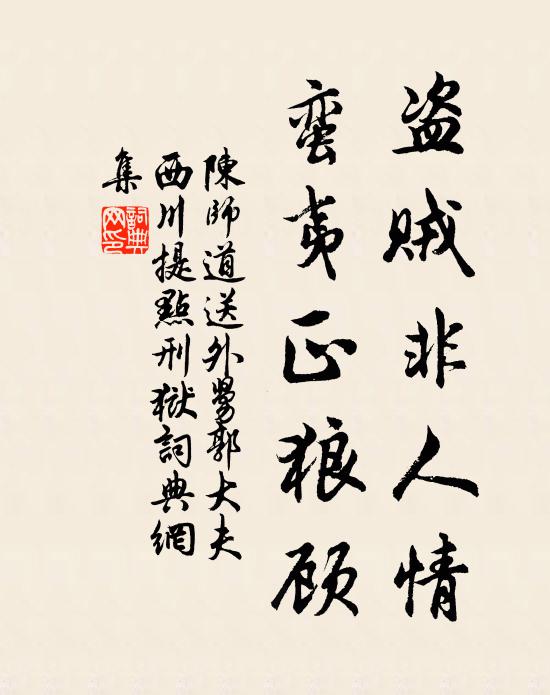 盗贼非人情
蛮夷正狼顾
陳師道送外舅郭大夫
西川提點刑獄詞典網
集
詞典网印